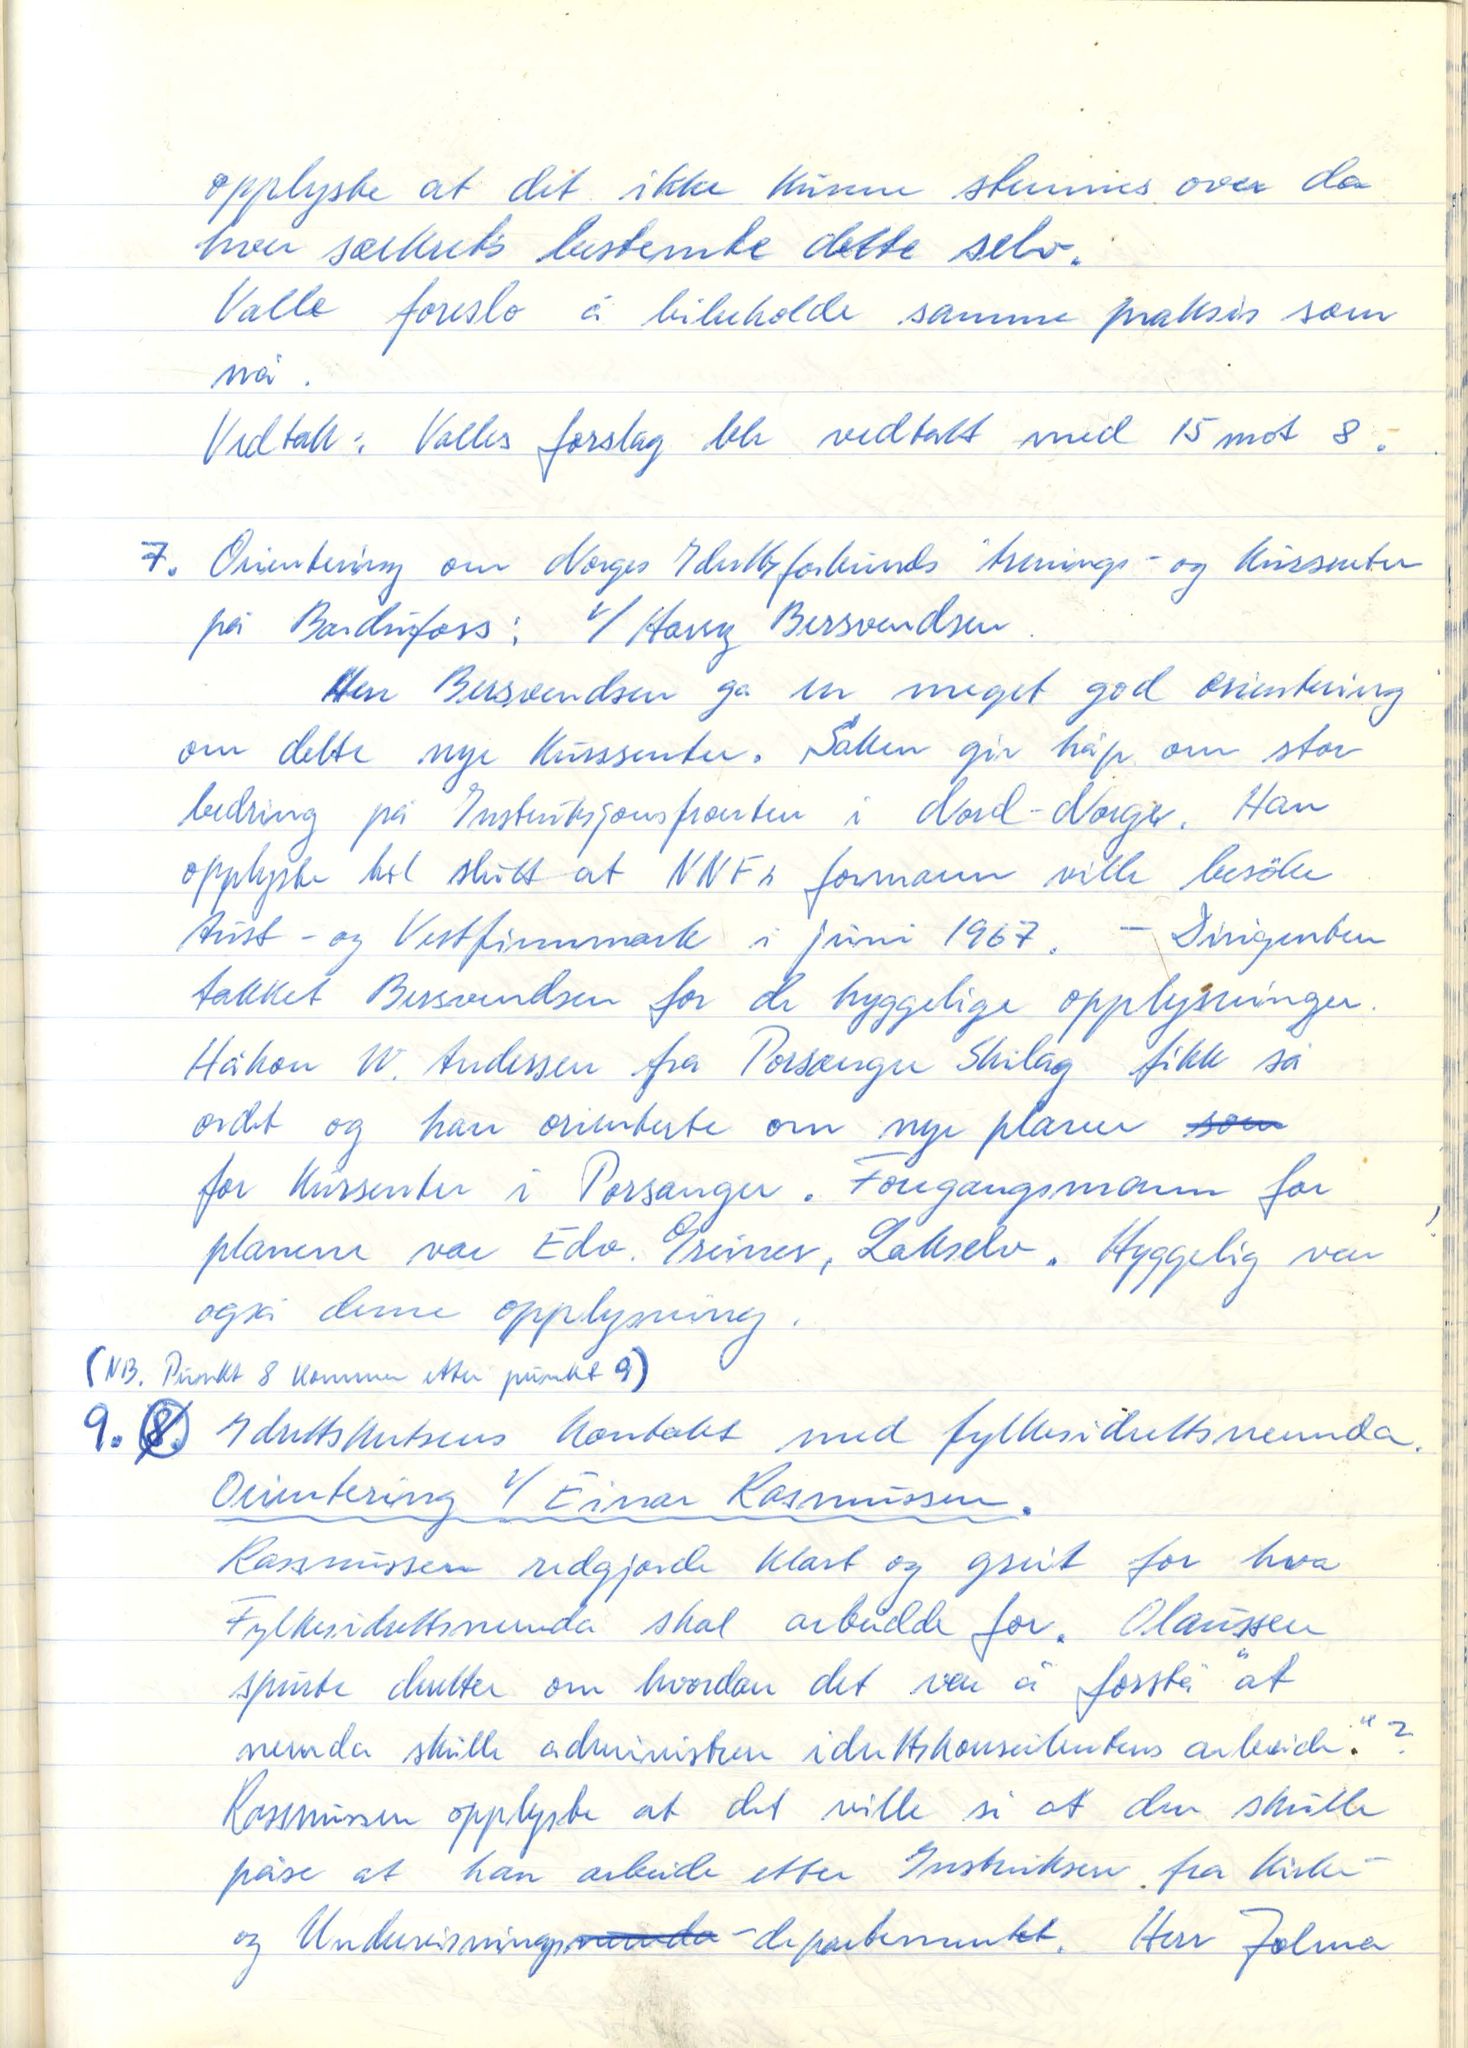 opplyste at det ikke kunne stemmes over da
hver særkrets bestemte dette selv.
Valle foreslo å bibeholde samme praksis som
nå.
Vedtak: Valles forslag ble vedtatt med 15 mot 8.
7. Orientering om Norges Idrettsforbunds trenings- og kurssenter
på Bardufoss: v/ Harry Bersvendsen.
Herr Bersvendsen ga en meget god orientering
om dette nye kurssenter. Saken gir håp om stor
bedring på Instruksjonsfronten i Nord-Norge. Han
opplyste til slutt at NNFs formann ville besöke
Aust- og Vestfinnmark i juni 1967. - Dirigenten
takket Bersvendsen for de hyggelige opplysninger.
Håkon W. Andersen fra Porsanger Skilag fikk så
ordet og han orienterte om nye planer som
for kurssenter i Porsanger. Foregangsmann for
planene var Edv. Greiner, Lakselv. Hyggelig var
også denne opplysning.
(NB. Punkt 8 kommer etter punkt 9)
9. 8. Idrettskretsens kontakt med fylkesidrettsnemnda.
Orientering v/ Einar Rasmussen.
Rasmussen redgjorde klart og greit for hva
Fylkesidrettsnemnda skal arbeidde for. Olaussen
spurte deretter om hvordan det var å forstå "at
nemnda skulle administrere idrettskonsulentens arbeide."?
Rasmussen opplyste at det ville si at den skulle
påse at han arbeide etter Instruksen fra Kirke-
og Undervisningsnemda-departementet. Herr Jolma